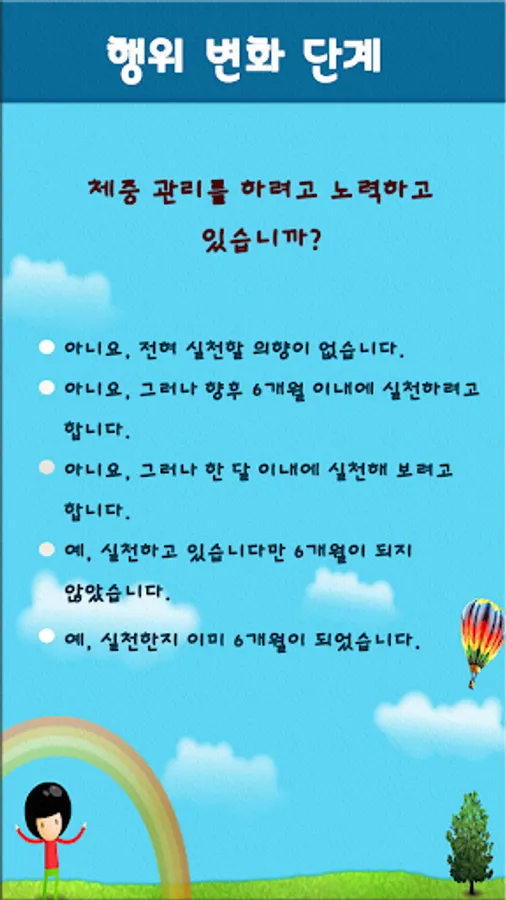 행위 변화 단계
체중 관리를 하려고 노력하고
있습니까?
아니요, 전혀 실천할 의향이 없습니다.
아니요, 그러나 향후 6개월 이내에 실천하려고
합니다.
아니요, 그러나 한 달 이내에 실천해 보려고
합니다.
예, 실천하고 있습니다만 6개월이 되지
않았습니다.
예, 실천한지 이미 6개월이 되었습니다.